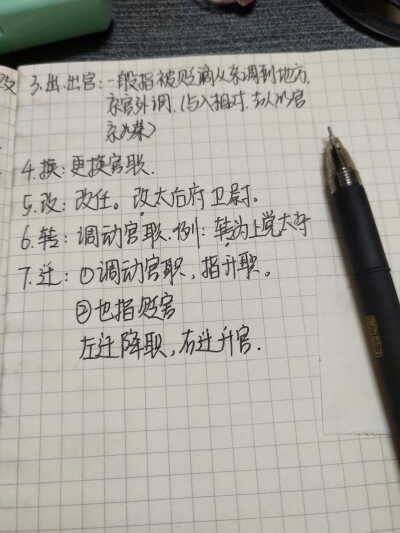 改
3.出.出宫:一般指被贬谪从京调到地方,
京官外调.(与入相对,
4.换:更换官职.
5.改:改任。改太后府卫尉。
6.转:调动官职.例:转为上党太守
7.迁:①调动官职,指升职。
②也指贬官
左迁降职,右迁升官.